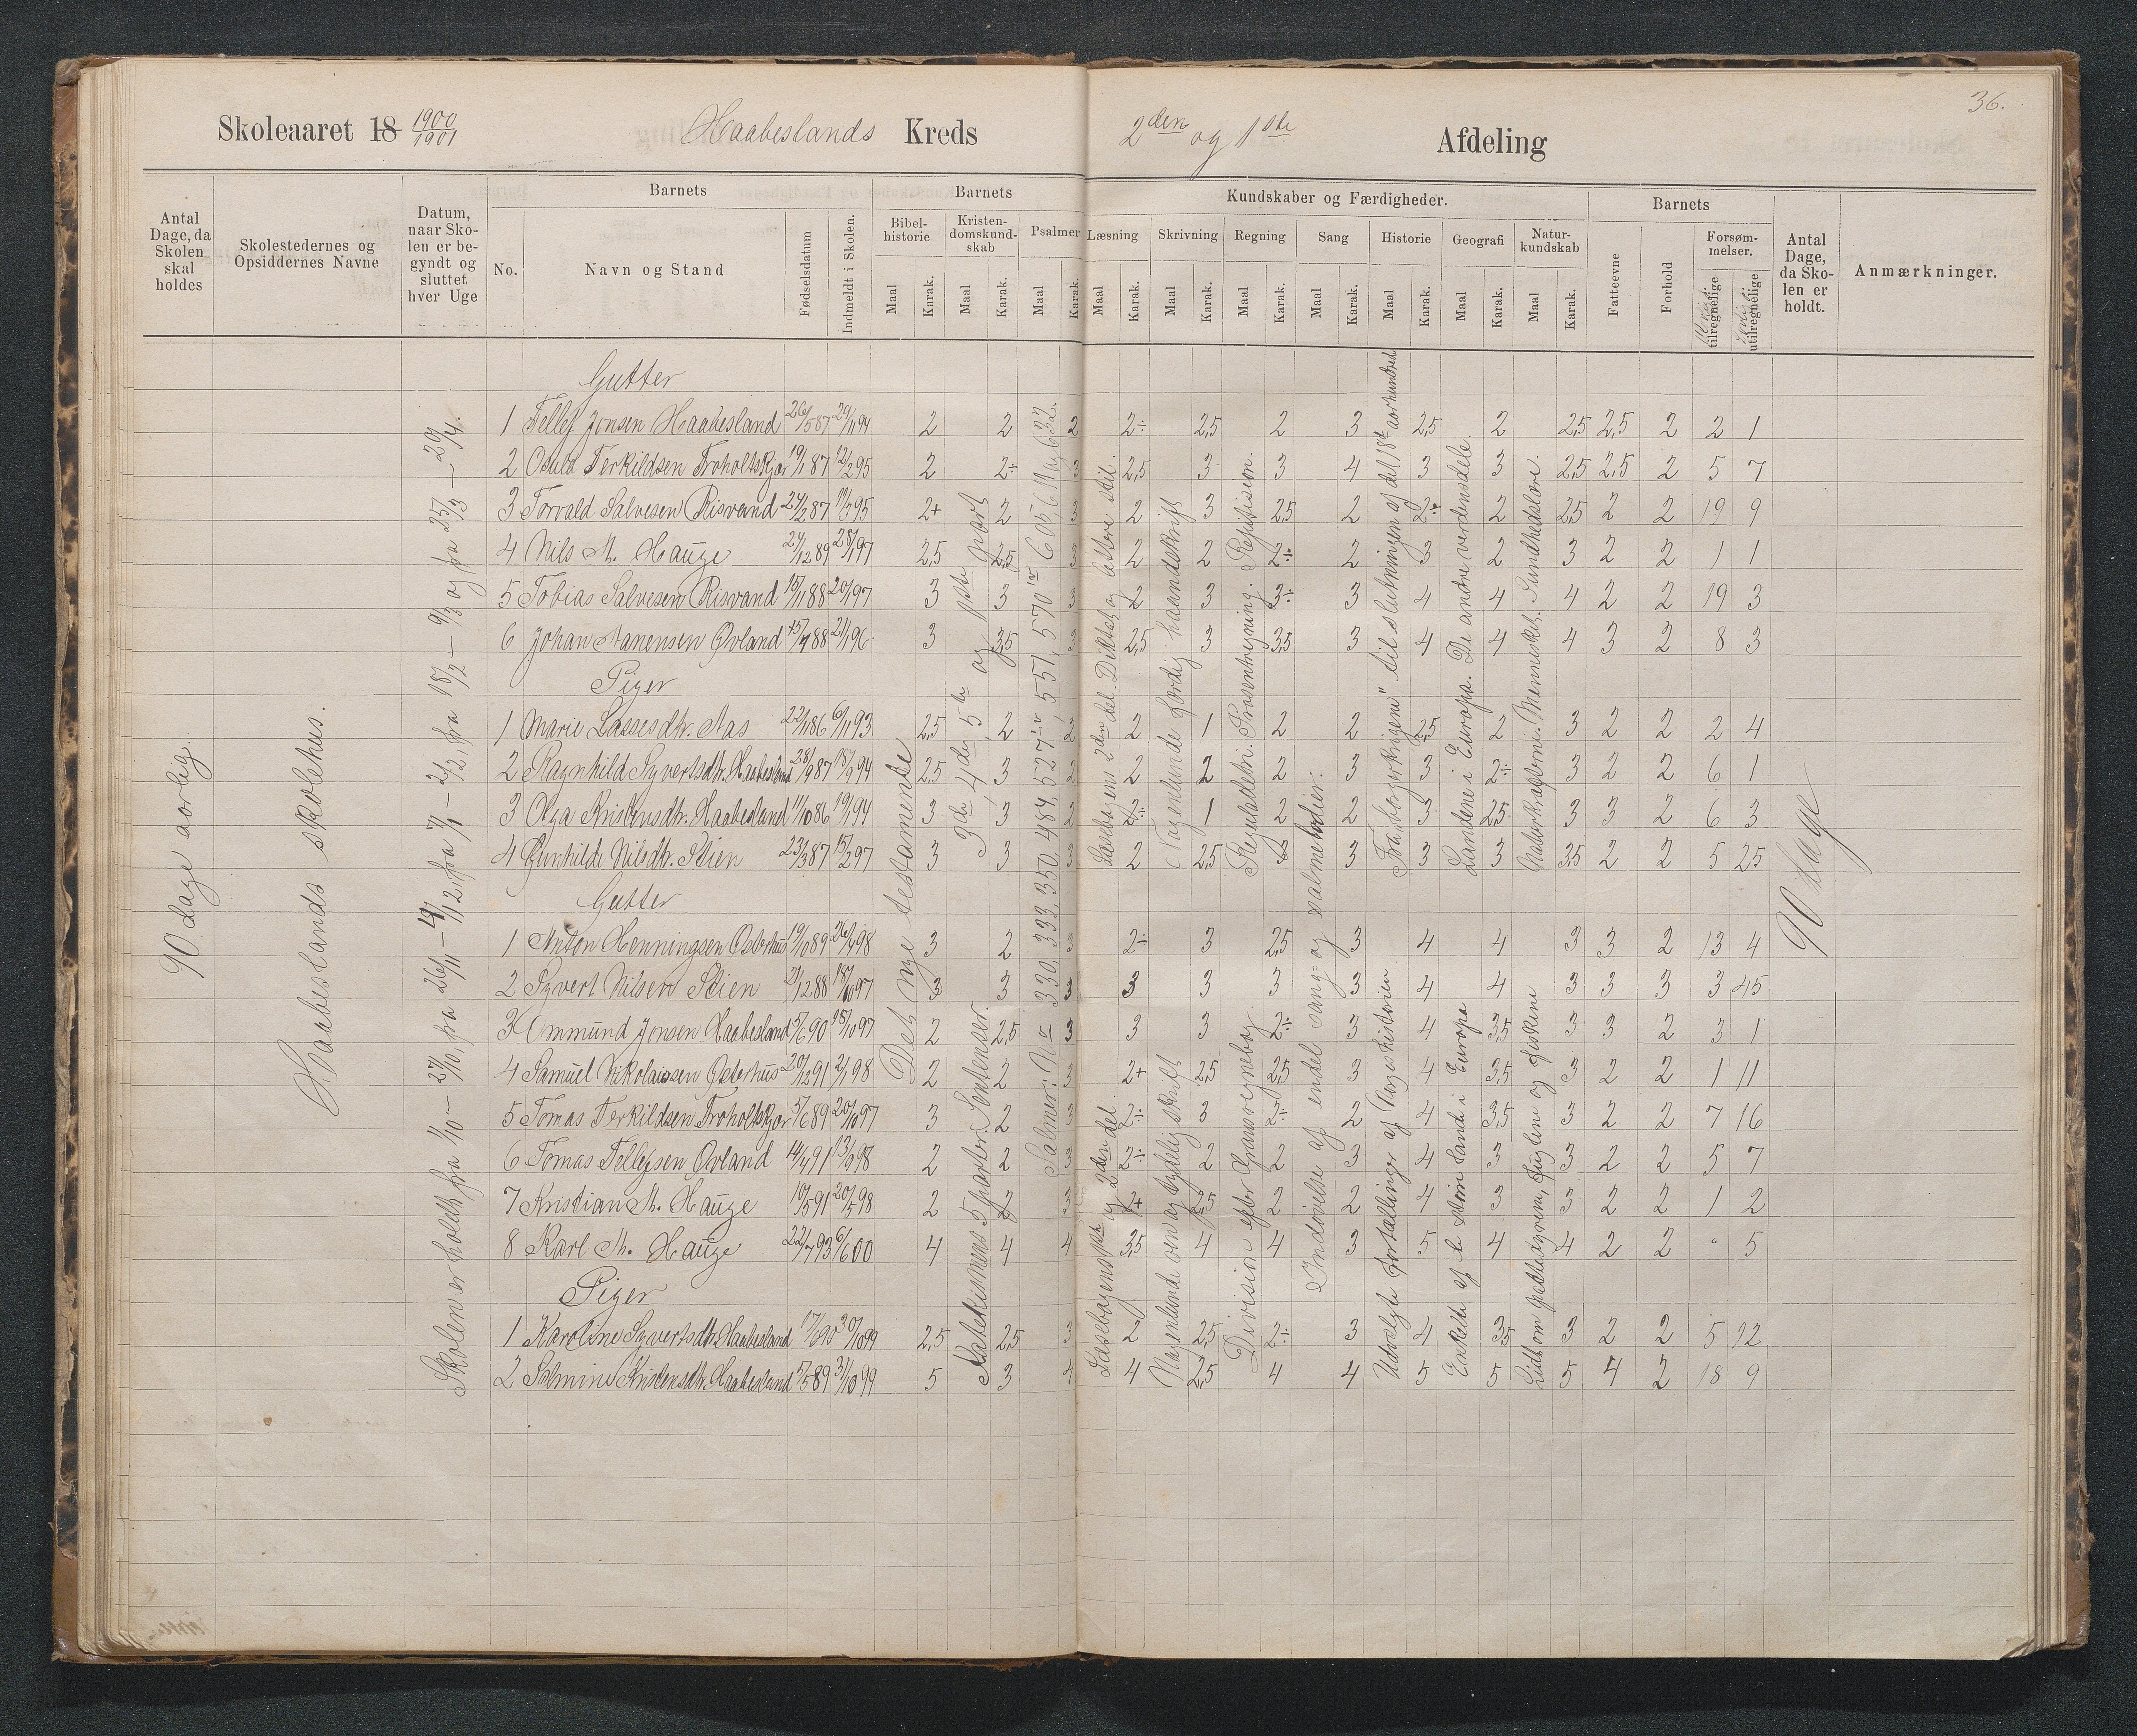 36.
Skoleaaret 18 1900/1901 Haabeslands Kreds 2den og 1ste Afdeling
Antal Dage, da Skolen skal holdes
Skolestedernes og Opsiddernes Navne
Datum, naar Skolen er begyndt og sluttet hver Uge
Barnets
No.
Navn og Stand
Fødselsdatum
Indmeldt i Skolen.
Barnets Kundskaber og Færdigheder.
Bibelhistorie Maal Karak.
Kristendomskundskab Maal Karak.
Psalmer Maal Karak.
Læsning Maal Karak.
Skrivning Maal Karak.
Regning Maal Karak.
Sang Maal Karak.
Historie Maal Karak.
Geografi Maal Karak.
Naturkundskab Maal Karak.
Barnets
Fatteevne
Forhold
Forsømmelser.
tilregnelige
utilregnelige
Antal Dage, da Skolen er holdt.
Anmærkninger.
90 dage aarlig.
Haabeslands skolehus.
Skolen er holdt fra 1/10 – 27/10, fra 26/11 – 4/12, fra 7/1 – 2/2, fra 18/2 – 9/3 og fra 25/3 – 29/4.
Det nye testamente
3de, 4de, 5te og 1ste part
Katekismens 5 parter. Sentenser.
Salmer: Nr 330, 333, 350, 484, 527, 551, 570, 605, 611 og 632.
Læsebogens 2den del. Diktat og lettere stil.
Læsebogens 1ste og 2den del.
Nogenlunde færdig haandskrift
Nogenlunde øen og tydelig skrift
Reguladetri. Prosentregning. Repitision.
Division efter Græns regnebog
Indøvelse af endel sang- og salmemelodier.
Fra "borgerkrigene" til slutningen af det 18de aarhundred
Udvalgte fortællinger af Norgeshistorien
Landene i Europa. De andre verdensdele.
Enkelte af de større lande i Europa
Naturkræfterne. Mennesket. Sundhedslære.
Lidt om pattedyrene, fuglene og fiskene
90 dage
Gutter
1 Tellef Jonsen Haabesland 26/5 87 29/1 94 2 2 2 2÷ 2,5 2 3 2,5 2 2,5 2,5 2 2 1
2 Osuld Terkildsen Froholtskjær 19/1 87 12/2 95 2 2÷ 3 2,5 3 3 4 3 3 2,5 2,5 2 5 7
3 Torvald Salvesen Risvand 24/2 87 11/7 95 2+ 2 3 2 3 2,5 2 2÷ 2 2,5 2 2 19 9
4 Nils M. Hauge 24/12 89 28/1 97 2,5 2,5 3 2 2 2÷ 2 3 2 3 2 2 1 1
5 Tobias Salvesen Risvand 15/11 88 20/1 97 3 3 3 2 3 3÷ 3 4 4 4 2 2 19 3
6 Johan Nanensen Øvland 15/7 88 21/1 96 3 3,5 3 2,5 3 3,5 3 4 4 4 3 2 8 3
Piger
1 Marie Lassesdtr. Aas 22/1 86 6/11 93 2,5 2 2 2 1 2 2 2,5 2 3 2 2 2 4
2 Ragnhild Syvertsdtr. Haabesland 28/9 87 18/9 94 2,5 3 2 2 2 2 3 3 2÷ 3 2 2 6 1
3 Olga Kristensdtr. Haabesland 11/10 86 19/1 94 3 3 2 2÷ 1 2 2 3 2,5 3 3 2 6 3
4 Gunhilde Nilsdtr. Stien 23/3 87 15/2 97 3 3 3 2 2,5 3 3 3 3 3,5 2 2 5 25
Gutter
1 Anton Henningsen Osterhus 19/10 89 26/4 98 3 2 3 2÷ 3 2,5 3 4 4 3 3 2 13 4
2 Syvert Nilsen Stien 21/12 88 18/10 97 3 3 3 3 3 3 3 4 4 3 3 3 3 45
3 Ommund Jonsen Haabesland 5/6 90 18/10 97 2 2,5 3 3 3 2÷ 3 4 3,5 3 3 2 3 1
4 Samuel Nikolaisen Osterhus 20/12 91 2/1 98 2 2 3 2+ 2,5 2,5 3 4 3,5 3 2 2 1 11
5 Tomas Terkildsen Froholtskjær 5/6 89 20/10 97 3 2 3 2÷ 3 2÷ 2 4 3,5 3 2 2 7 16
6 Tomas Tellefsen Øvland 14/4 91 13/9 98 2 2 3 2÷ 2 2 3 4 3 3 2 2 5 7
7 Kristian M. Hauge 10/5 91 20/5 98 2 2 3 2+ 2,5 2 2 4 3 3 2 2 1 2
8 Karl M. Hauge 22/7 93 6/6 00 4 4 4 3,5 4 4 3 5 4 4 2 2 " 5
Piger
1 Karoline Syvertsdtr. Haabesland 17/6 90 30/10 99 2,5 2,5 3 2 2,5 2÷ 3 4 3,5 3 2 2 5 12
2 Salmine Kristensdtr. Haabesland 5/5 89 31/10 99 5 3 4 4 2,5 4 4 5 5 5 4 2 18 9